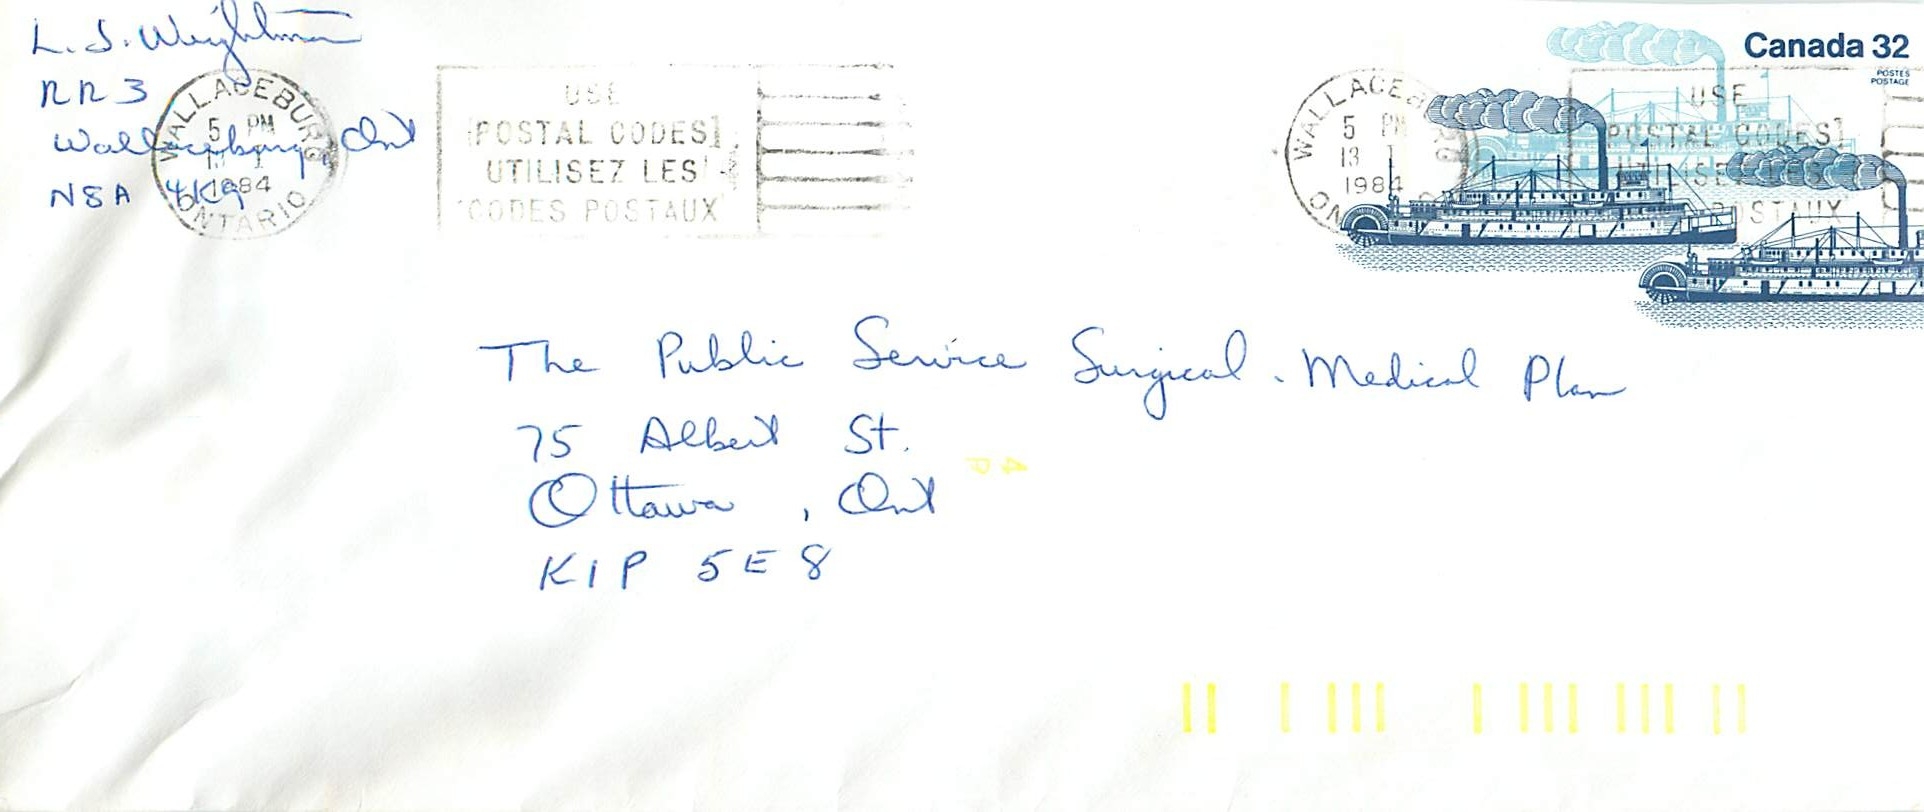 L. S. Weightman
RR 3
Wallaceburg, Ont
N8A 4K9
WALLACEBURG
5 PM
1984
ONTARIO
USE
POSTAL CODES
UTILISEZ LES
CODES POSTAUX
WALLACEBURG
5 PM
13 I
1984
ON
USE
POSTAL CODES
UTILISEZ LES
POSTAUX
Canada 32
POSTES
POSTAGE
The Public Service Surgical - Medical Plan
75 Albert St.
Ottawa, Ont
K1P 5E8